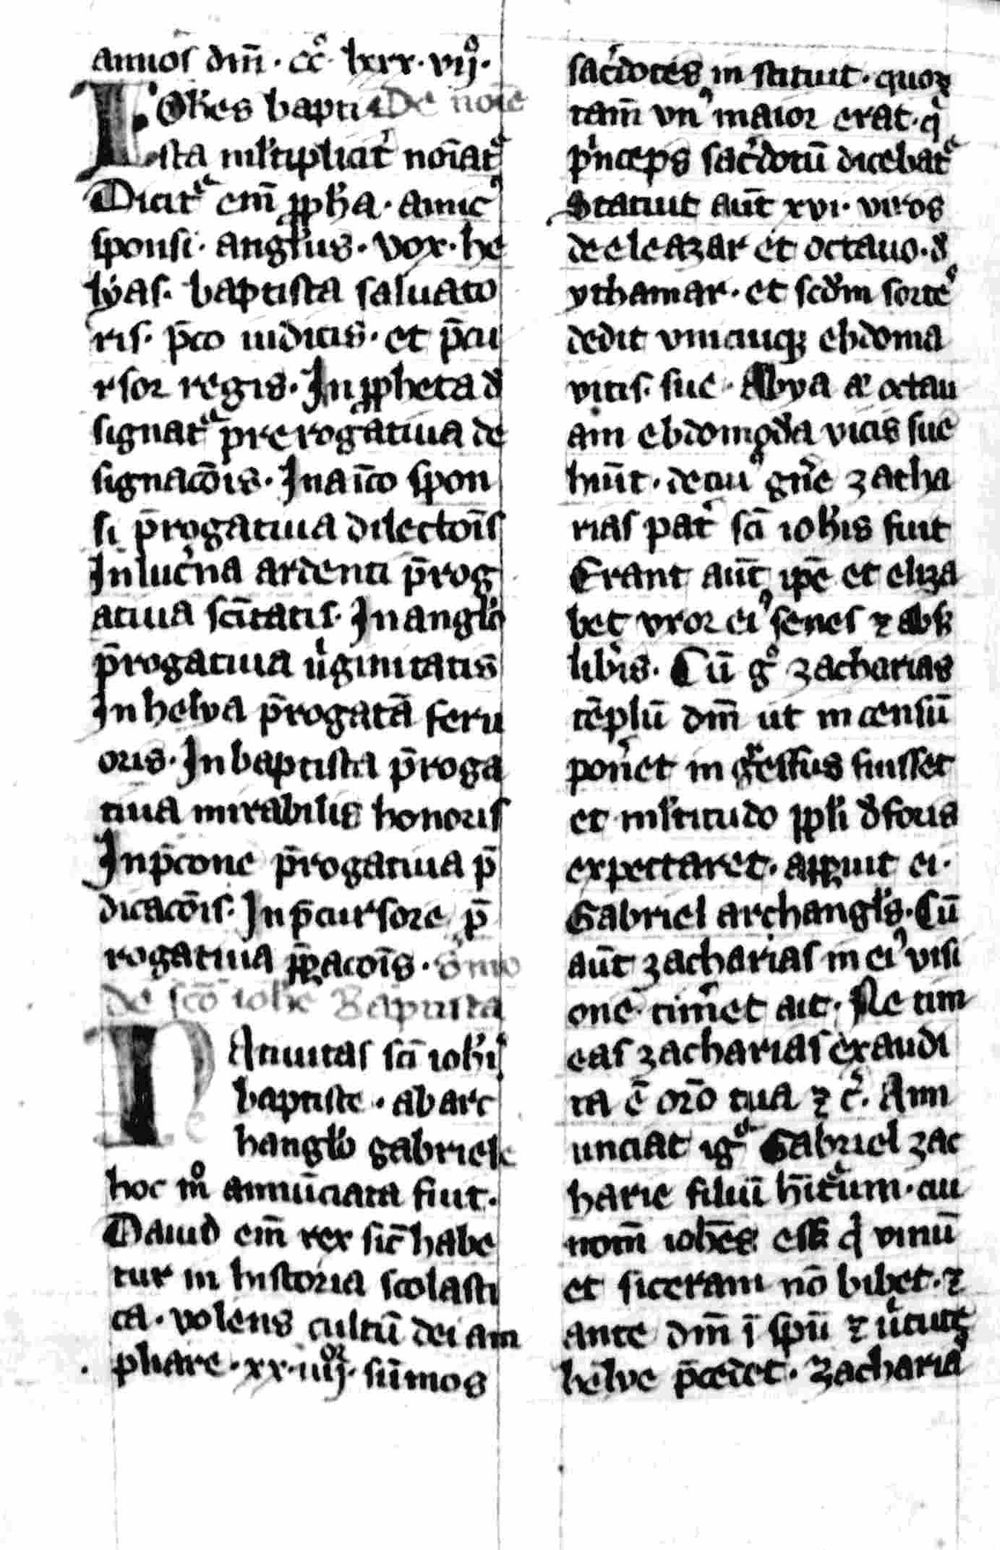 annos dm̄ · cc̊ · lxxx · vij̊ ·
Ioh̄es bapti De noīe
sta ml̄tiplicit᷑ noīat᷑
Dicit᷑ em̄ ꝓph̄a · amic⁹
sponsi · angl̄us · vox · he
lyas · baptista saluato
ris · p̄co iudicis · et p̄cu
rsor regis · In ꝓpheta d̄
signat᷑ prerogatiua de
signacōis · In aīco spon
si p̄rogatiua dilectōis
In luc̄na ardenti p̄rog
atiua sc̄itatis · In angl̄o
p̄rogatiua v̄ginitatis
In helya p̄rogatā feru
oris · In baptista p̄roga
tiua mirabilis honoris
In p̄cone p̄rogatiua p̄
dicacōis · In p̄cursore p̄
rogatiua p̄ꝑacōis · s̄mo
de sc̄o iohe Baptista
Natiuitas sc̄i ioh̄is
baptiste · ab arc
hangl̄o gabriele
hoc m̊ annūciata fiut ·
Dauid em̄ rex sic̄ habe
tur in historia scolasti
ca · volens cultū dei am
pliare · xx · iiij · sūmos
sac̄dotes instituit · quoꝝ
tam̄ vn⁹ maior erat · q̇
p̄nceps sac̄dotū dicebat᷑
Statuit aūt xvi · viros
de eleazar et octauo · d̄
ythamar · et scd̄m sortē
dedit vnicuiqꝫ ebdoma
vicis · sue · Abya aūt octau
am ebdomoda vicis sue
hūit · de cui⁹ gn̄e zacha
rias pat᷑ sc̄i ioh̄is fuit
Erant aūt ip̄e et eliza
bet vxor ei⁹ senes ⁊ absqꝫ
lib̄is · Cū g̊ zacharias
tēplū dm̄ ut incensū
pon̄et ingr̄essus fuisset
et ml̄titudo ppl̄i d̄foris
expectaret · apꝑuit ei ·
Gabriel archangl̄s · Cū
aūt zacharias in ei⁹ visi
one tim̄et ait · Ne tim
eas zacharias exaudi
ta ē orō tua ⁊ c̄ · Ann
unciat ig᷑ Gabriel zac
harie filiū h̄iturum · cui
nom̄ ioh̄es esset q̇ vinū
et siceram nō bibet · ⁊
ante dm̄ ī spū ⁊ v̄tute
helye p̄cēdet · Zacharia